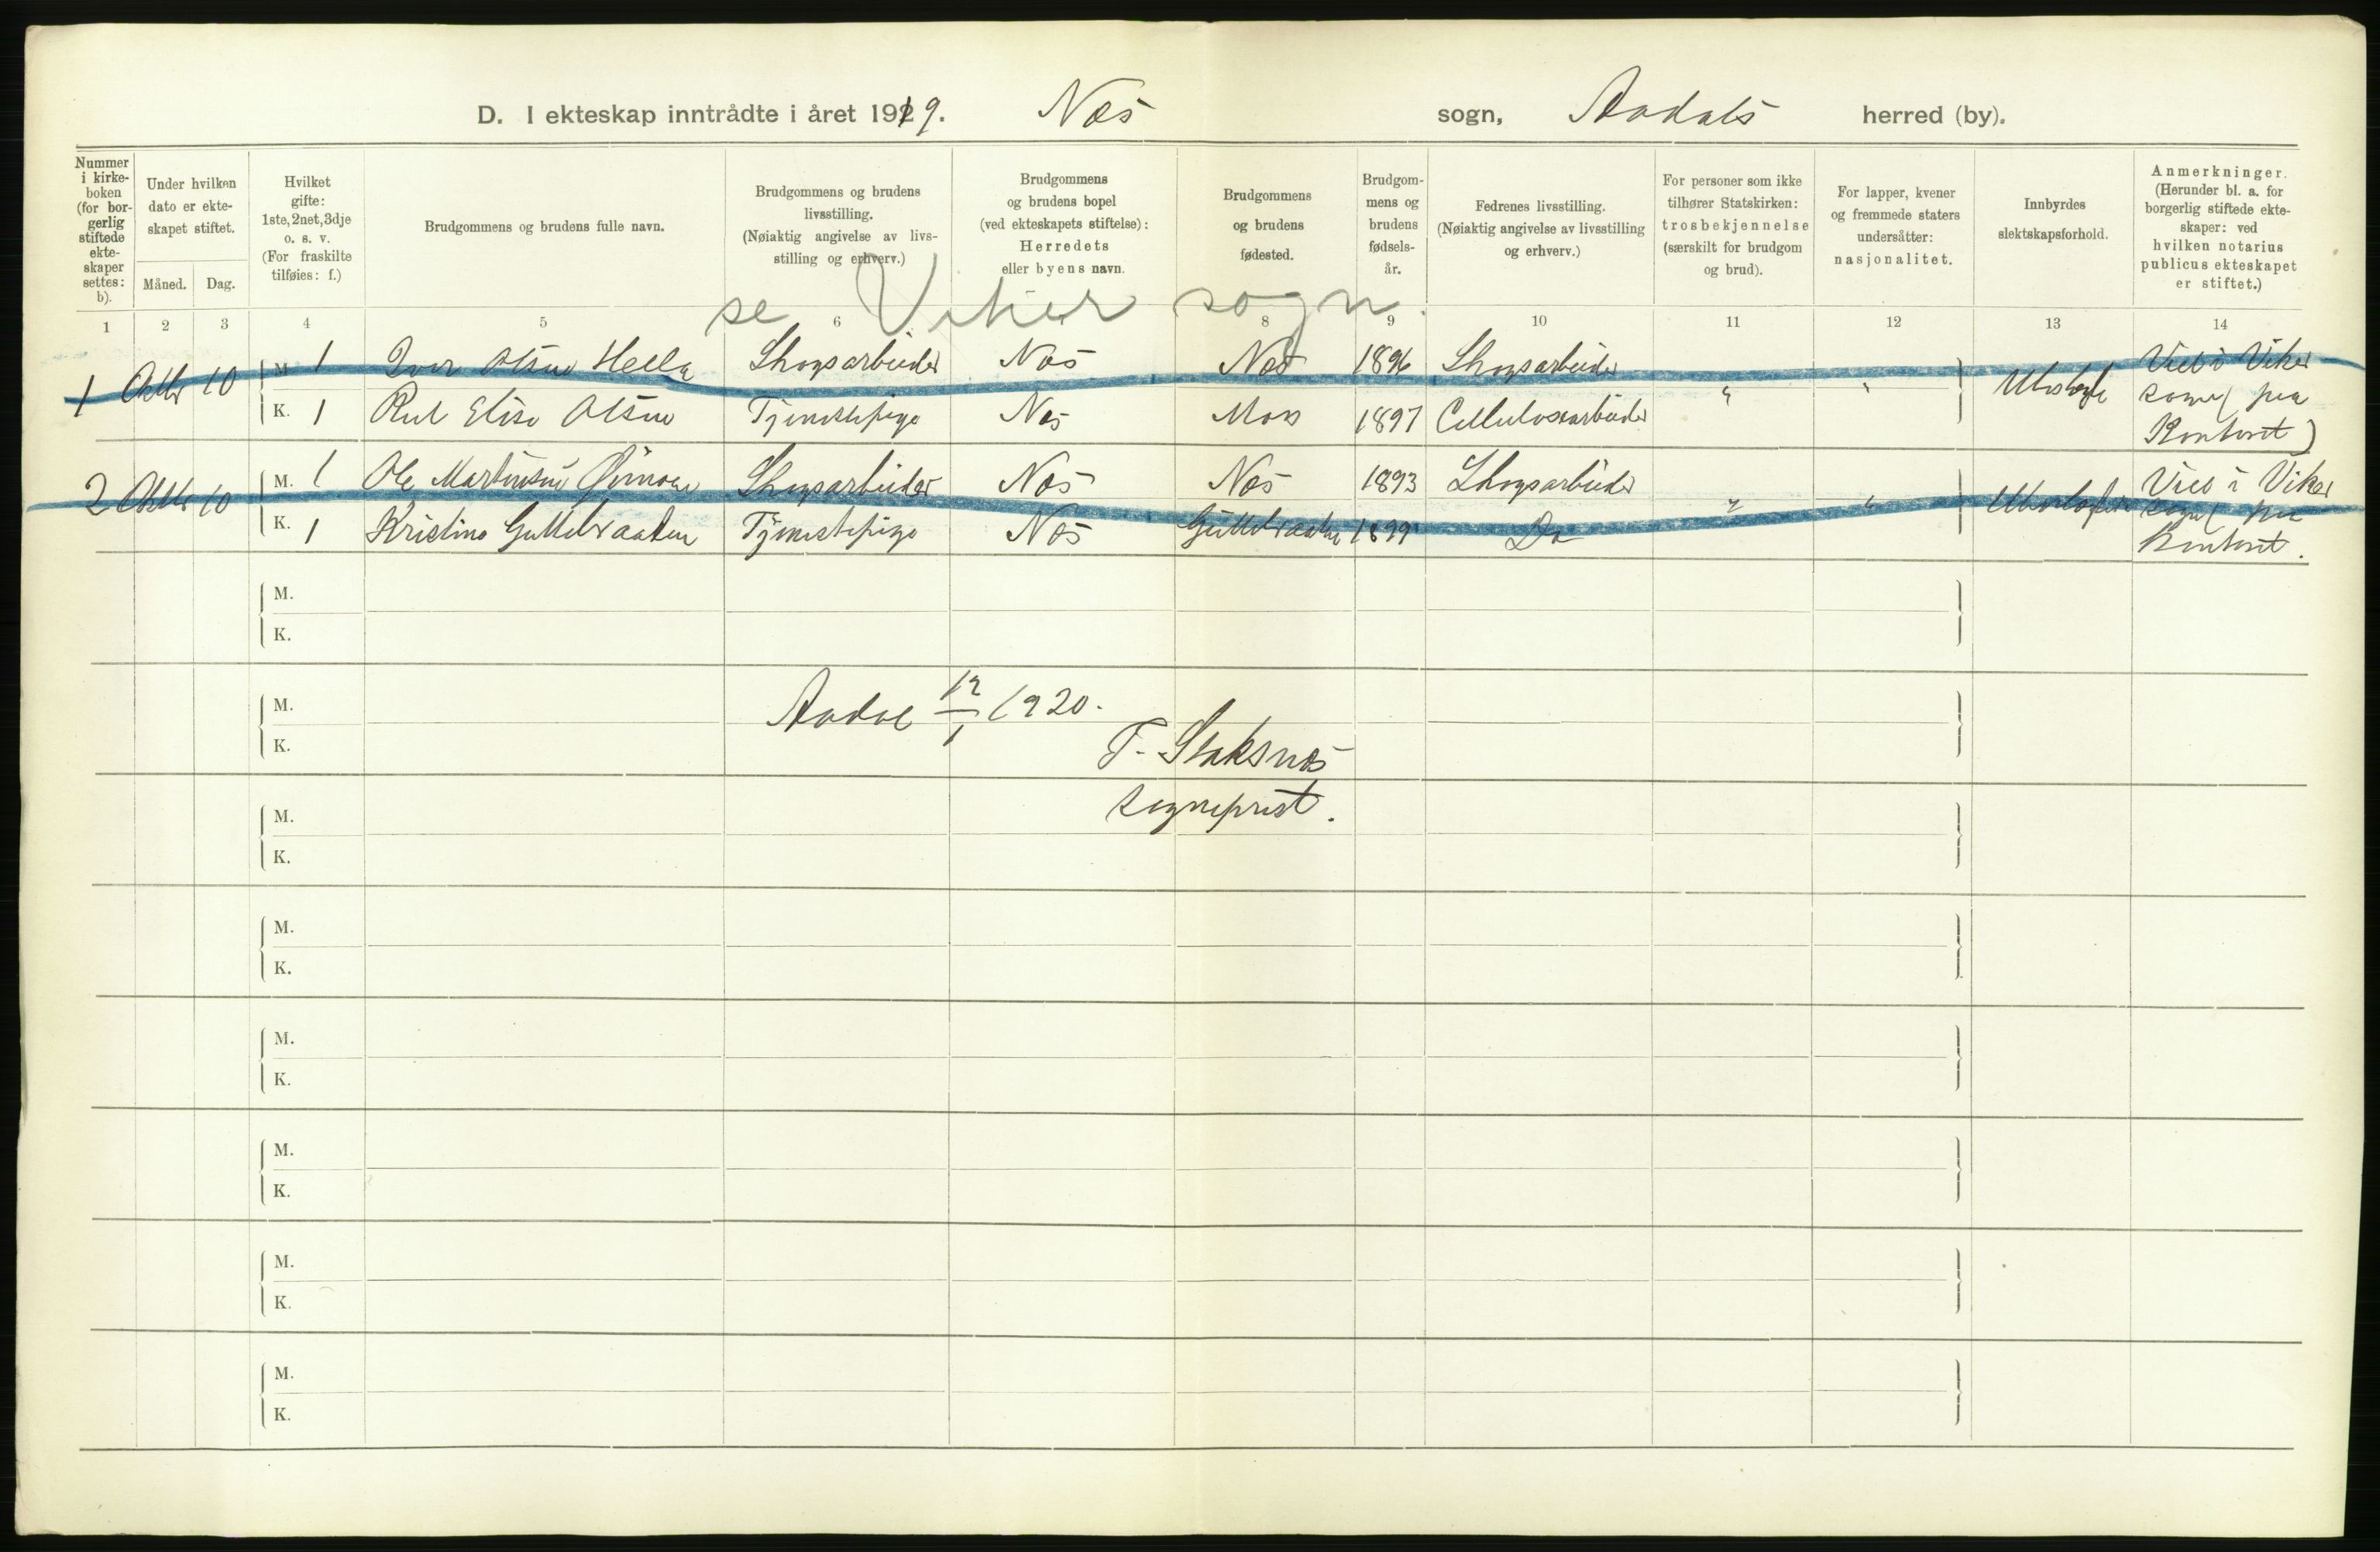 D. I ekteskap inntrådte i året 1919. Næs sogn, Aadals herred (by).
Nummer i kirkeboken (for borgerlig stiftede ekteskaper settes: b).
Under hvilken dato er ekteskapet stiftet.
Måned. Dag.
Hvilket gifte: 1ste, 2net, 3dje o. s. v. (For fraskilte tilføies: f.)
Brudgommens og brudens fulle navn.
Brudgommens og brudens livsstilling. (Nøiaktig angivelse av livsstilling og erhverv.)
Brudgommens og brudens bopel (ved ekteskapets stiftelse): Herredets eller byens navn.
Brudgommens og brudens fødested.
Brudgommens og brudens fødselsår.
Fedrenes livsstilling. (Nøiaktig angivelse av livsstilling og erhverv.)
For personer som ikke tilhører Statskirken: trosbekjennelse (særskilt for brudgom og brud).
For lapper, kvener og fremmede staters undersåtter: nasjonalitet.
Innbyrdes slektskapsforhold.
Anmerkninger. (Herunder bl. a. for borgerlig stiftede ekteskaper: ved hvilken notarius publicus ekteskapet er stiftet.)
se Viker sogn.
1 2 3 4 5 6 8 9 10 11 12 13 14
1 Oktbr 10 M. 1 Ivar Olsen Hella Skogsarbeider Næs Næs 1896 Skogsarbeider " " Ubeslegt Viet i Viker
K. 1 Rut Elise Olsen Tjenestepige Næs Moss 1897 Cellulosearbeider sogn (paa
Kontoret)
2 Oktbr 10 M. 1 Ole Martinsen Næs Næs 1893 Skogsarbeider " " Viet i Viker
Skogsarbeider sogn (paa
K. 1 Kristine Guttelsraaden Tjenestepige Næs Guttelsraaden 1899 Do Kontoret.
M.
K.
M. Aadal 12/1 1920.
K. T. Staksnæs
M. sogneprest.
K.
M.
K.
M.
K.
M.
K.
M.
K.
M.
K.